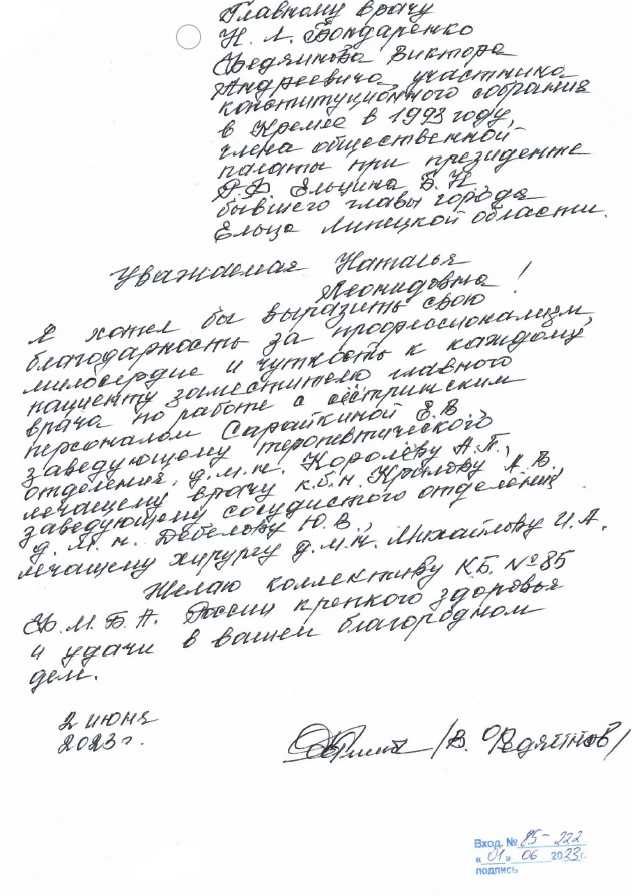 Главному врачу
Н. Л. Бондаренко
Федяинова Виктора
Андреевича, участника
конституционного собрания
в Кремле в 1993 году,
члена общественной
палаты при президенте
Р.Ф. Ельцина Б. Н
бывшего главы города
Ельца Липецкой области.
Уважаемая Наталья
Леонидовна !
Я хотел бы выразить свою
благодарность за профессионализм,
милосердие и чуткость к каждому
пациенту заместителю главного
врача по работе с сестринским
персоналом Сарайкиной Е.В.
заведующему терапевтического
отделения, д.м.н. Королёву А.П.,
лечащему врачу к.б.н. Крылову А.В.,
заведующему сосудистого отделения,
д. м. н. Дебелову Ю.В.,
лечащему хирургу д.м.н. Михайлову И.А.
Желаю коллективу К.Б. №85
Ф.М.Б.А. России крепкого здоровья
и удачи в вашем благородном
деле.
2 июня
2023 г.
/В. Федяинов/
Вход. № 85-222
«01» 06 2023 г.
подпись